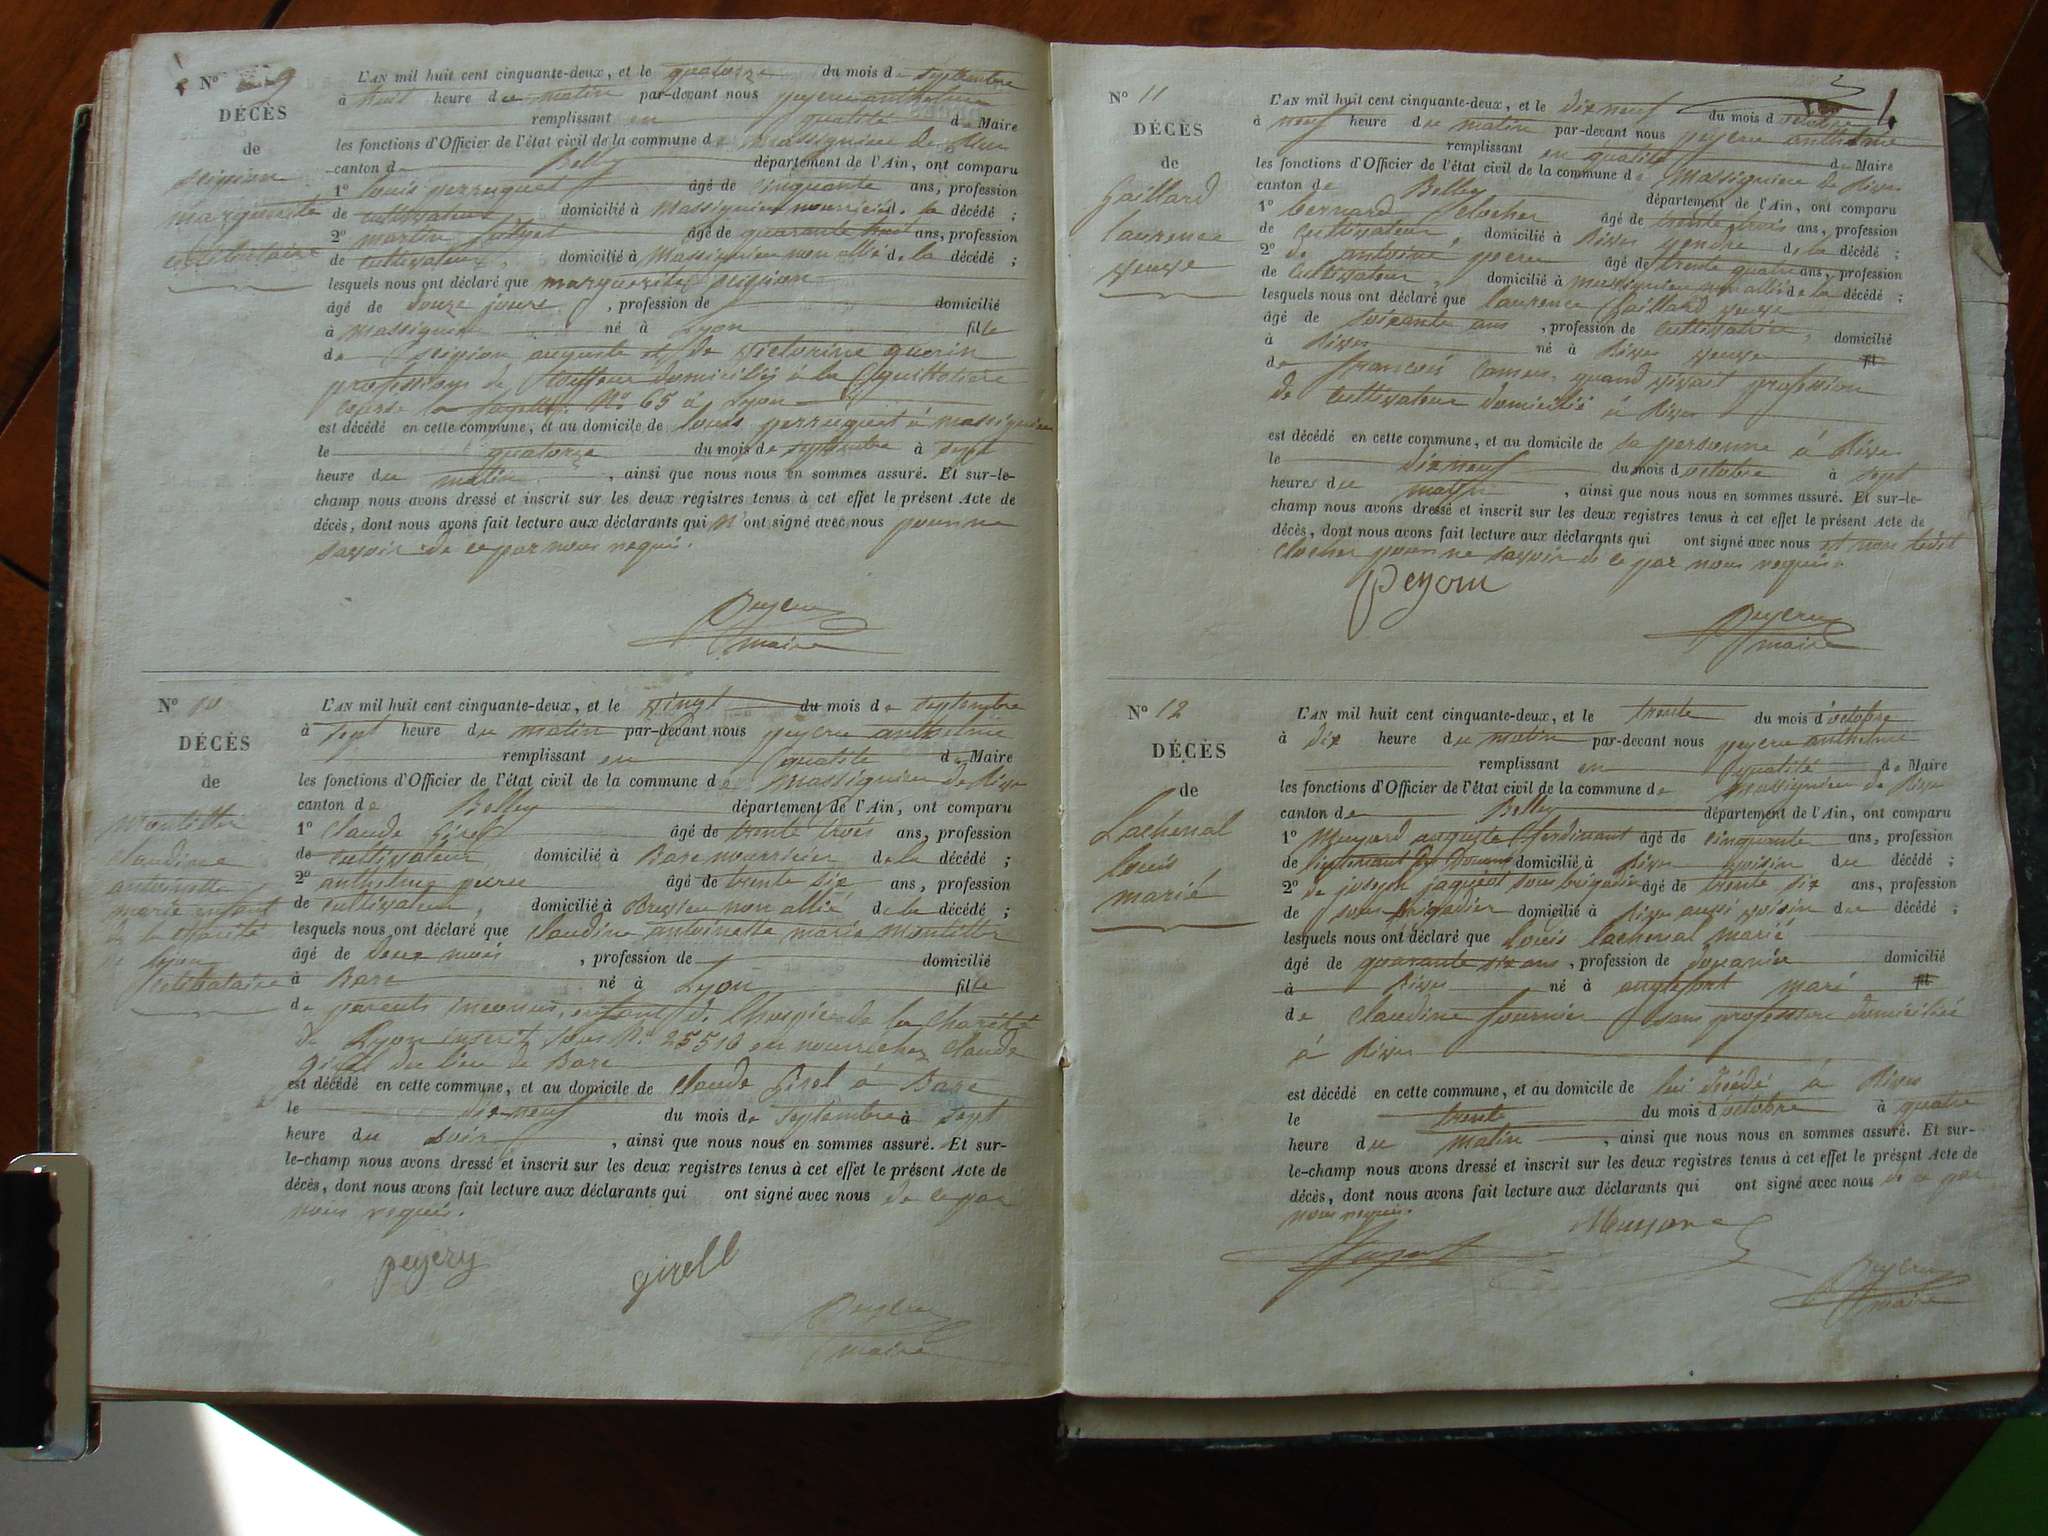 N° 9
DÉCÈS
de
scipion
marguerite
célibataire
L'AN mil huit cent cinquante-deux, et le quatorze du mois de septembre
à huit heure du matin par-devant nous peyeru anthelme
remplissant en qualité de Maire
les fonctions d'Officier de l'état civil de la commune de massignieu de
canton de Belley département de l'Ain, ont comparu
1° louis perruquet âgé de cinquante ans, profession
de cultivateur domicilié à Massignieu nourricier de la décédé ;
2° martin âgé de quarante huit ans, profession
de cultivateur, domicilié à Massignieu non allié de la décédé ;
lesquels nous ont déclaré que marguerite scipion
âgé de douze jours, profession de domicilié
à Massignieu né à Lyon fille
de scipion auguste et de victorine guerin
professions de domiciliés à la
cours la fayette N° 65 à Lyon
est décédé en cette commune, et au domicile de louis perruquet à massignieu
le quatorze du mois de septembre à sept
heure du matin, ainsi que nous nous en sommes assuré. Et sur-le-
champ nous avons dressé et inscrit sur les deux registres tenus à cet effet le présent Acte de
décès, dont nous avons fait lecture aux déclarants qui n'ont signé avec nous pour ne
savoir de ce par nous requis.
Peyeru
maire
N° 10
DÉCÈS
de
claudine
antoinette
marie enfant
de la charité
de lyon
célibataire
L'AN mil huit cent cinquante-deux, et le vingt du mois de septembre
à sept heure du matin par-devant nous peyeru anthelme
remplissant en qualité de Maire
les fonctions d'Officier de l'état civil de la commune de massignieu de Rives
canton de Belley département de l'Ain, ont comparu
1° Claude Girel âgé de trente trois ans, profession
de cultivateur, domicilié à Bare nourricier de la décédé ;
2° anthelme âgé de trente six ans, profession
de cultivateur, domicilié à non allié de la décédé ;
lesquels nous ont déclaré que Claudine antoinette marie
âgé de deux mois, profession de domicilié
à Bare né à Lyon fille
de parents inconnus, enfant d. l'hospice de la Charité
de Lyon inscrit sous N° 25510 en nourri chez Claude
Girel du lieu de Bare
est décédé en cette commune, et au domicile de Claude Girel à Bare
le dix neuf du mois de septembre à sept
heure du soir, ainsi que nous nous en sommes assuré. Et sur-
le-champ nous avons dressé et inscrit sur les deux registres tenus à cet effet le présent Acte de
décès, dont nous avons fait lecture aux déclarants qui ont signé avec nous de ce par
nous requis.
peyery girell
Peyeru
maire
N° 11
DÉCÈS
de
Gaillard
laurence
veuve
L'AN mil huit cent cinquante-deux, et le dix neuf du mois d'octobre
à neuf heure du matin par-devant nous peyeru anthelme
remplissant en qualité de Maire
les fonctions d'Officier de l'état civil de la commune de Massignieu de Rives
canton de Belley département de l'Ain, ont comparu
1° bernard clocher âgé de trente trois ans, profession
de cultivateur, domicilié à Rives gendre de la décédé ;
2° de antoine âgé de trente quatre ans, profession
de cultivateur, domicilié à massignieu non allié de la décédé ;
lesquels nous ont déclaré que laurence Gaillard veuve
âgé de soixante ans, profession de cultivatrice, domicilié
à Rives né à Rives veuve fil
de françois quand vivait profession
de cultivateur domicilié à Rives
est décédé en cette commune, et au domicile de sa personne à Rives
le dix neuf du mois d'octobre à sept
heures du matin, ainsi que nous nous en sommes assuré. Et sur-le-
champ nous avons dressé et inscrit sur les deux registres tenus à cet effet le présent Acte de
décès, dont nous avons fait lecture aux déclarants qui ont signé avec nous et non ledit
clocher pour ne savoir de ce par nous requis.
Peyeru
maire
N° 12
DÉCÈS
de
Lachenal
louis
marié
L'AN mil huit cent cinquante-deux, et le trente du mois d'octobre
à dix heure du matin par-devant nous peyeru anthelme
remplissant en qualité de Maire
les fonctions d'Officier de l'état civil de la commune de Massignieu de Rives
canton de Belley département de l'Ain, ont comparu
1° auguste ferdinant âgé de cinquante ans, profession
de lieutenant des Douanes domicilié à Rives voisin du décédé ;
2° de joseph jaquet sous brigadier âgé de trente six ans, profession
de sous brigadier domicilié à Rives aussi voisin du décédé ;
lesquels nous ont déclaré que louis lachenal marié
âgé de quarante six ans, profession de douanier domicilié
à Rives né à anglefort mari fil
de Claudine fournier sans profession domiciliée
à Rives
est décédé en cette commune, et au domicile de lui décédé à Rives
le trente du mois d'octobre à quatre
heure du matin, ainsi que nous nous en sommes assuré. Et sur-
le-champ nous avons dressé et inscrit sur les deux registres tenus à cet effet le présent Acte de
décès, dont nous avons fait lecture aux déclarants qui ont signé avec nous de ce par
nous requis.
Peyeru
maire